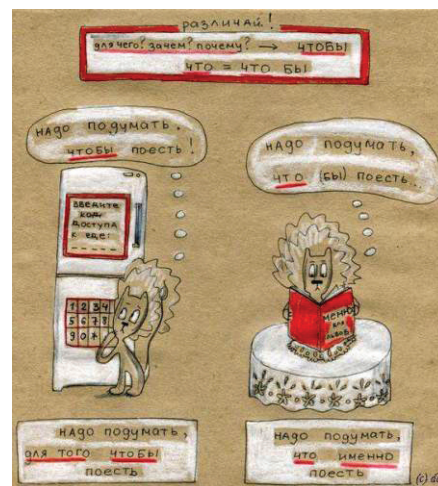 различай!
для чего? зачем? почему? → чтобы
что = что бы
надо подумать,
чтобы поесть!
введите
код
доступа
к еде:
1 2 3 4
5 6 7 8
9 0
надо подумать,
что (бы) поесть...
меню
для
львов
надо подумать,
для того чтобы
поесть
надо подумать,
что именно
поесть
(c)